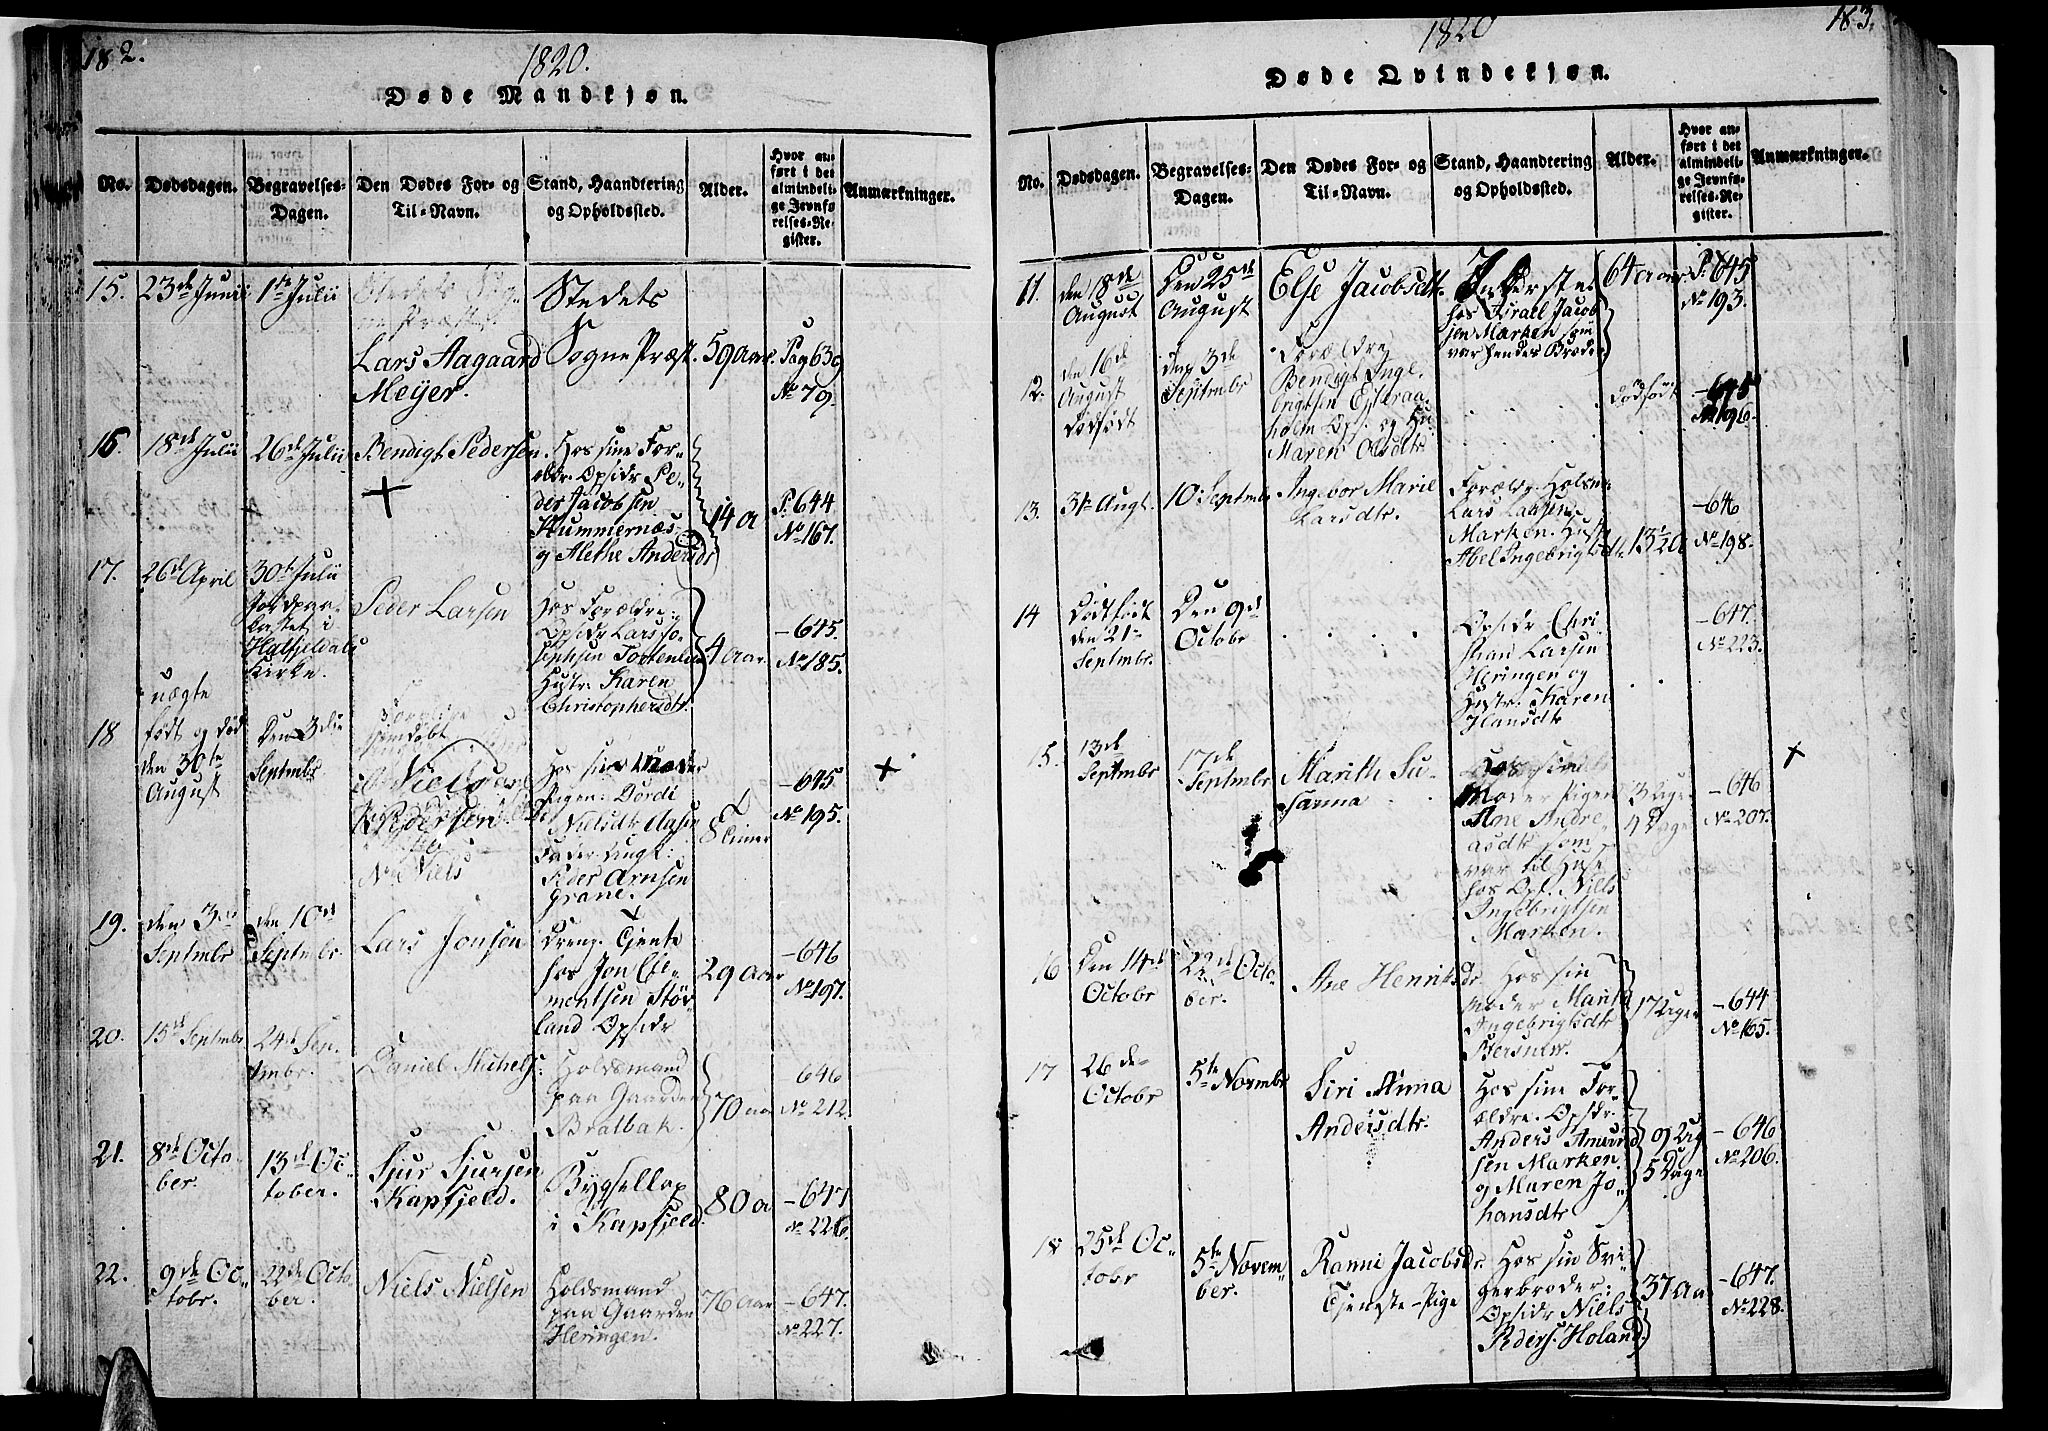 182.
1820.
Døde Mandkjøn.
No.
Dødsdagen.
Begravelses-
Dagen.
Den Dødes For- og
Til-Navn.
Stand, Haandtering
og Opholdssted.
Alder.
Hvor an-
ført i det
almindeli-
ge Jevnfø-
relses-Re-
gister.
Anmærkninger.
15.
23de Junii
1te Julii
Stedets Sog-
ne Præst
Lars Aagaard
Meyer.
Stedets
Sogne Præst.
59 aar.
Pag 639
No 79.
16.
18de Julii
26de Julii
Bendigt Pedersen
Hos sine For-
ældr. Opsidr Pe-
der Jacobsen
Kummernæs-
g Alethe Andersdr
14 a
P. 644
No 167.
17.
26d April
30te Julii
Jordpaa-
kastet i
Hatfjeldals
Kirke.
Peder Larsen
Hos Forældre:
Opsidr Lars Jo-
sephsen
Hustr. Karen
Christophersdtr.
4 aar.
- 645.
No 185.
18
uægte
født og død
den 30te
August
Den 3die
Septmbr
hjemdøbt
Niels
Pedersen
NB Niels
Hos sin Moder
Pigen: Dordi
Nielsdtr
Fader angl:
Peder Arnsen
Grane.
8 Timer
- 645.
No 195.
19.
den 3die
Septmbr
den 10de
Septmbr.
Lars Jonsen
Dreng. Tjente
hos Jon Cle-
mentsen Stör-
land Opsidr
29 aar
- 646
No 197.
20.
15de Septmbr
24d Sep-
tmbr.
Daniel Michels:
Holdsmand
paa Gaarden
Bratbak.
70 aar
646
No 212.
21.
8de Octo-
ber.
13de Oc-
tober.
Sjur Sjursen
Kapfjeld.
Bygsellap
i Kapfjeld.
80 a
- 647
No 226.
22.
9de Oc-
tobr.
22de Octo
ber.
Niels Nielsen
Holdsmand
paa Gaarden
Heringen.
76 aar
- 647.
No 227.
1820
183.
Døde Qvindekjøn.
No.
Dødsdagen.
Begravelses-
Dagen.
Den Dødes For- og
Til-Navn.
Stand, Haandtering
og Opholdssted.
Alder.
Hvor an-
ført i det
almindeli-
ge Jevnfø-
relses-Re-
gister.
Anmærkninger.
11.
den 18de
August
Den 25de
August
Else Jacobsdtr.
Inderste
hos Israel Jacob
sen Marken som
var hendes Broder
64 aar
P. 645
No 193.
12.
den 16de
August
dödfödt
den 3de
Septembr
Forældre
Bendigt Inge-
brigtsen
holm Ops. og Hu.
Maren Olsdtr.
dödfödt
- 645
No 196.
13.
31te Augt.
10. Septmbr
Ingebor Marie
Larsdtr.
Forældr. Holsm.
Lars Larsen
Marken. Hustr
Abel Ingebrigtsdtr
13 1/2 a
- 646
No 198.
14
Dödfödt
den 21de
Septmbr.
Den 9de
Octobr
Opsidr Chri
stian Larsen
Heringen og
Hustr. Karen
Hansdtr
- 647.
No 223.
15.
13de
Septmbr
17de
Septmbr
Marith Su-
sanna
Hos sin
Moder Pigen
Ane Andre-
asdtr som
var til Huse
hos Ops. Niels
Ingebrigtsen
Marken.
3 Uger
4 Dage
- 646
No 207.
16
Den 14de
Octobr
22de Octo-
ber.
Ane Henriksdr
Hos sin
Moder Marith
Ingebrigtsdtr
17 Uger
- 644
No 165.
17
26de
Octobr
5te Novmbr
Siri Anna
Andersdtr.
Hos sine For-
ældre. Opsdr.
Anders Amund
sen Marken
og Maren Jo-
hansdtr
9 Ug
5 Dage
- 646
No 206.
18
25de Oc-
tobr
5te Novem-
ber.
Ranni Jacobsdr.
Tjeneste-Pige
Hos sin Svi-
gerbroder:
Opsidr Niels
Peders. Holand.
37 aa
- 647.
No 228.